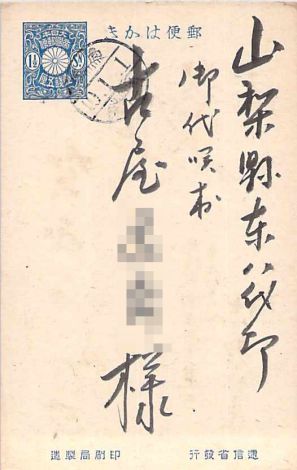 郵便はかき
山梨縣東八代郡
御代咲村
古屋
様
1½ Sn
逓信省發行
印刷局製造